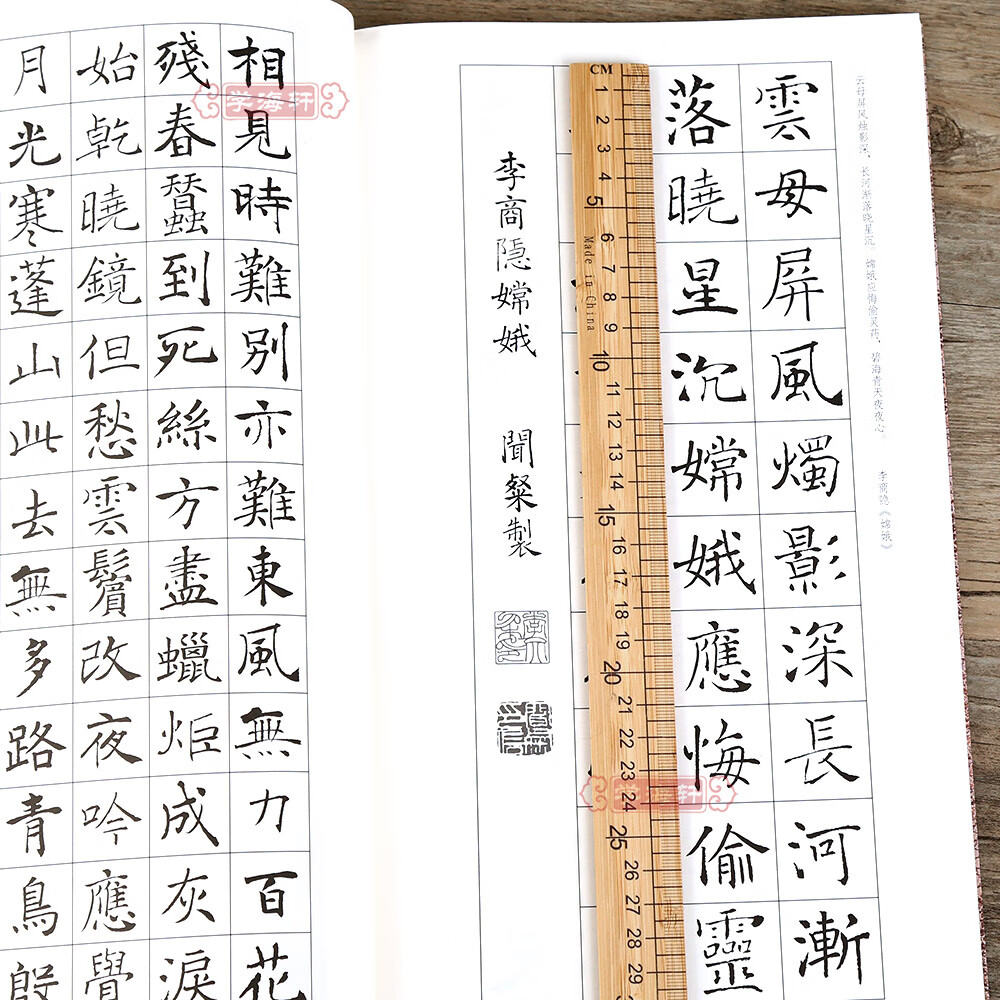 云母屏风烛影深，长河渐落晓星沉。嫦娥应悔偷灵药，碧海青天夜夜心。
李商隐《嫦娥》
雲母屏風燭影深長河漸
落曉星沉嫦娥應悔偷靈
李商隐嫦娥 聞粲製
相見時難別亦難東風無力百花
殘春蠶到死絲方盡蠟炬成灰淚
始乾曉鏡但愁雲鬢改夜吟應覺
月光寒蓬山此去無多路青鳥殷
CM
1
2
3
4
5
6
7
8
9
10
11
12
13
14
15
16
17
18
19
20
21
22
23
24
25
26
27
28
29
Made in China
学海轩
学海轩